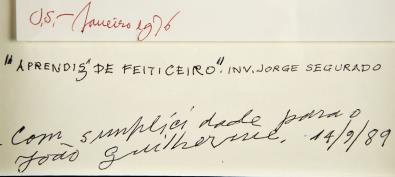 J.S. - Janeiro 1976
"APRENDIZ DE FEITICEIRO". INV. JORGE SEGURADO
Com simplicidade para o
João Guilherme. 14/9/89